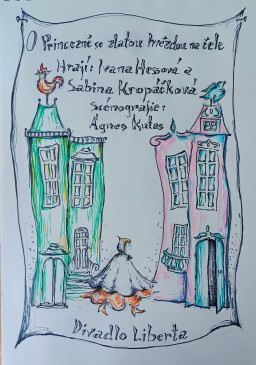 O Princezně se zlatou hvězdou na čele
Hrají: Ivana Hesová a
Sabina Kropáčková
Scénografie:
Agnes Kutas
Divadlo Liberta